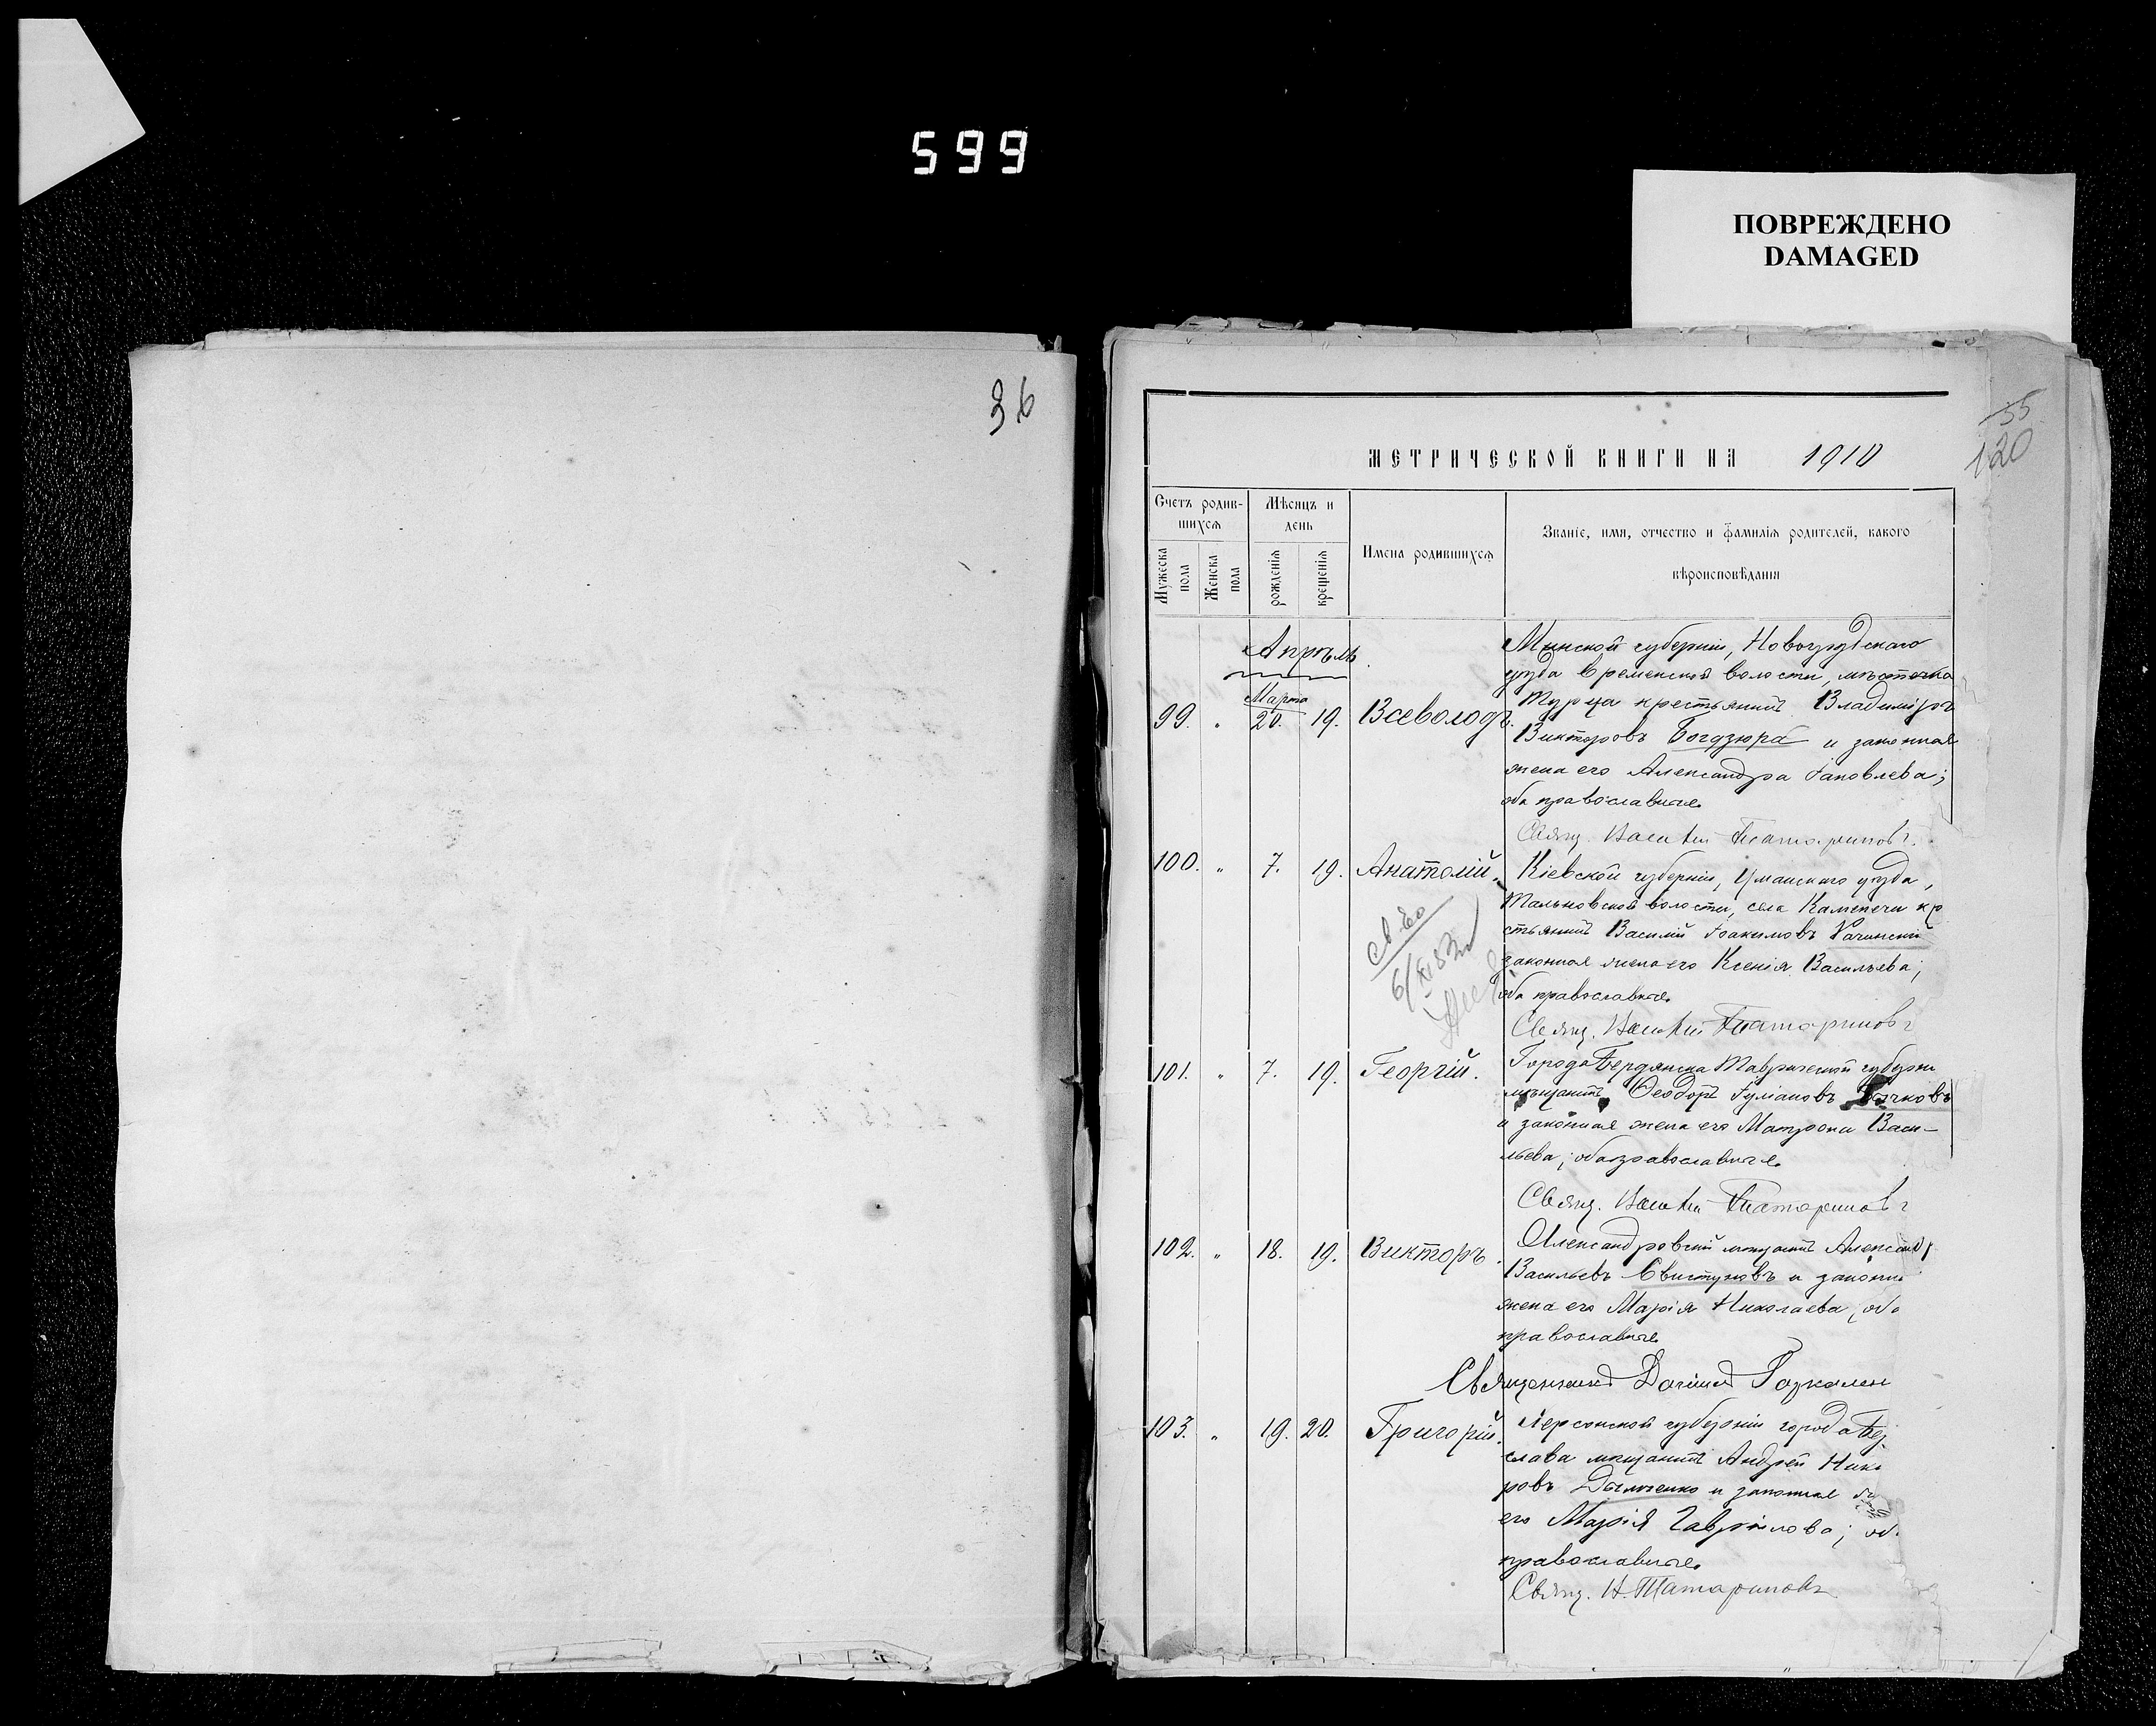 599
ПОВРЕЖДЕНО
DAMAGED
36
55
120
МЕТРИЧЕСКОЙ КНИГИ НА 1910
Счетъ родив-
шихся
Мѣсяцъ и
день
Мужеска
пола
Женска
пола
рожденія
крещенія
Имена родившихся
Званіе, имя, отчество и фамилія родителей, какого
вѣроисповѣданія
Апрѣль
99. " Марта 20. 19. Всеволодъ.
Минской губерніи, Новогрудскаго
уѣзда волости, мѣстечка
Турца крестьянинъ Владиміръ
Викторовъ Богдзюра и законная
жена его Александра Іаковлева;
оба православные.
Свящ. Татариновъ.
100. " 7. 19. Анатолій.
Кіевской губерніи, Уманскаго уѣзда,
Тальновской волости, села кр
стьянинъ Василій Іоакимовъ
законная жена его Ксенія Васильева;
оба православные.
Свящ. Татариновъ
101. " 7. 19. Георгій.
Города Бердянска Таврической губерні
мѣщанинъ Ѳеодоръ
и законная жена его Матрона Васи-
льева; оба православные.
Свящ. Татариновъ
102. " 18. 19. Викторъ.
Александровскій мѣщанинъ Александр
Васильевъ Свистуновъ и законна
жена его Марія Николаева; оба
православные.
Священникъ
103. " 19. 20. Григорій.
Херсонской губерніи города Бер
слава мѣщанинъ Андрей
ровъ и законная
его Марія Гаврілова; об
православные.
Свящ. Н. Татариновъ